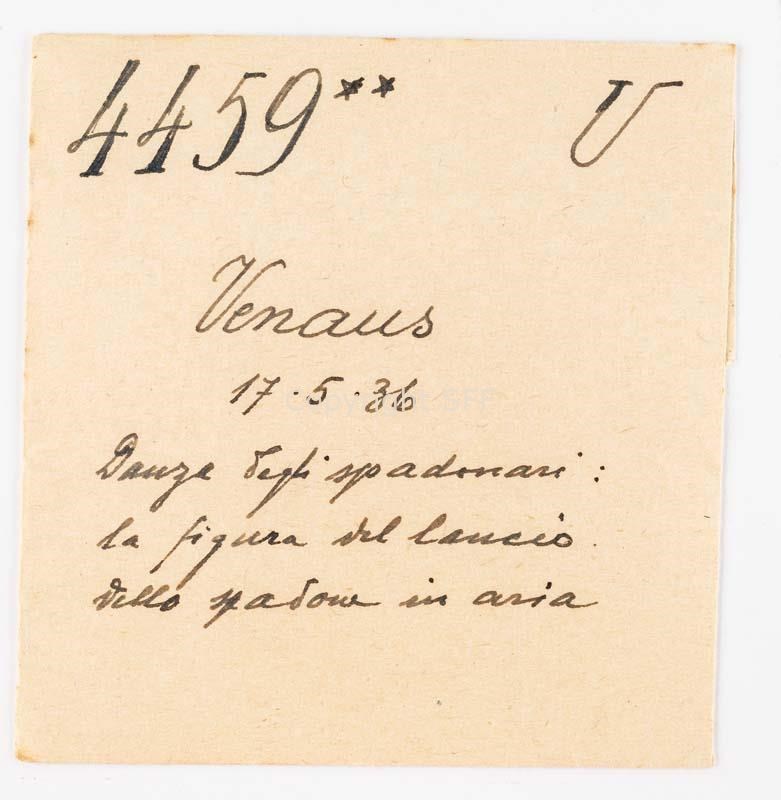 4459** U
Venaus
17.5.36
Danza degli spadonari:
la figura del lancio
dello spadone in aria